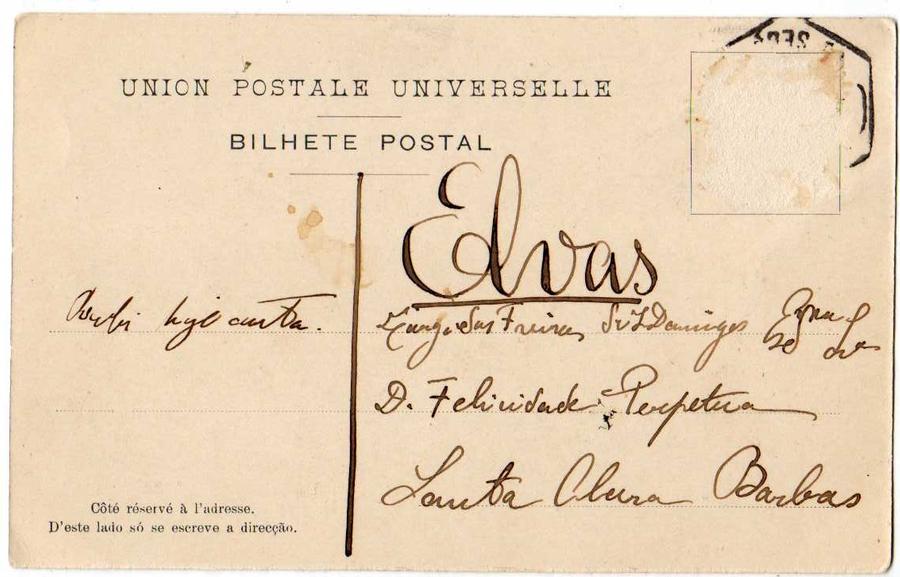 UNION POSTALE UNIVERSELLE
BILHETE POSTAL
Elvas
Largo das Freiras S. Domingos
hije carta.
D. Felicidade Perpetua
Santa Clara Barbas
Côté réservé à l'adresse.
D'este lado só se escreve a direcção.